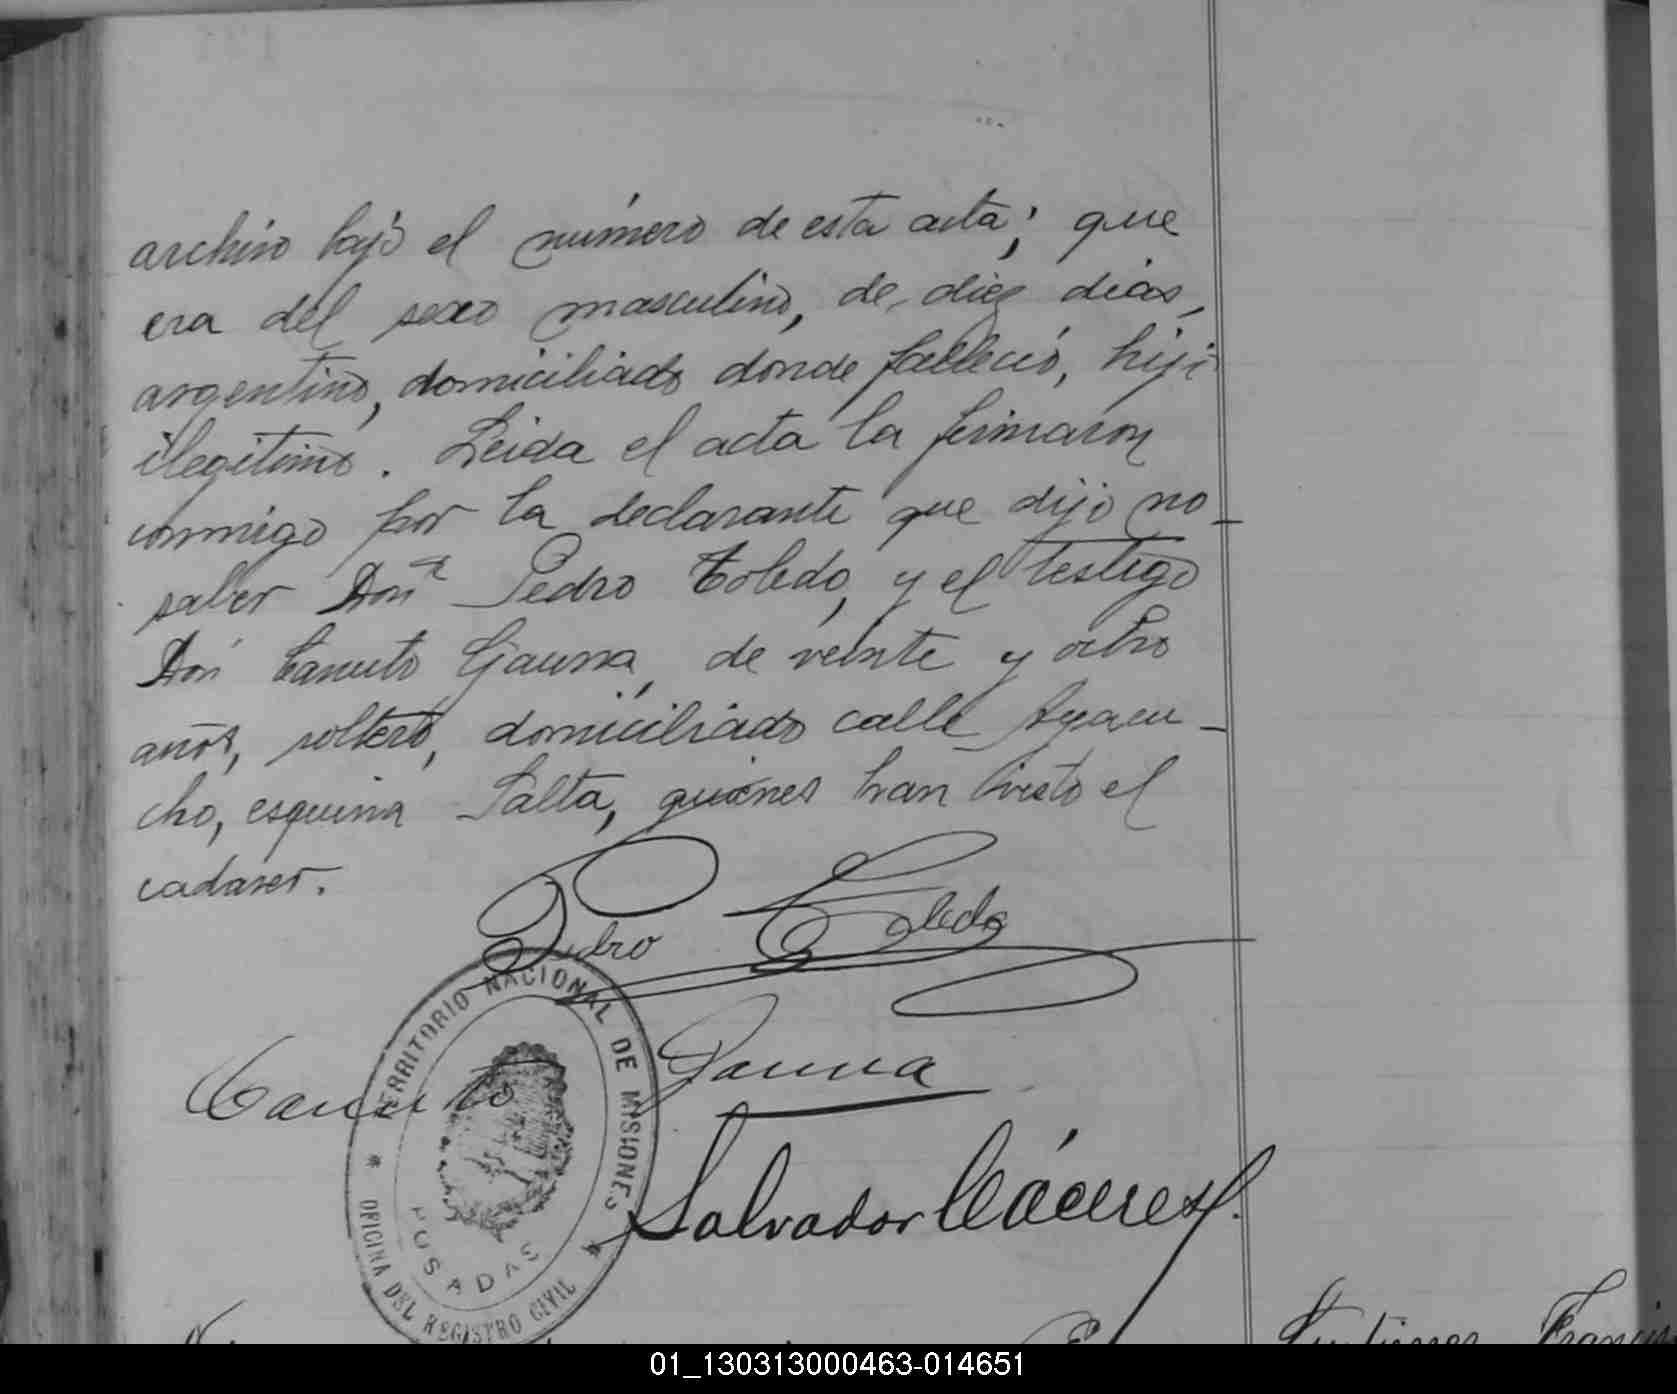 archivo bajo el número de esta acta; que
era del sexo masculino, de diez dias,
argentino, domiciliado donde falleció, hijo
ilegitimo. Leida el acta la firmaron
conmigo por la declarante que dijo no
saber Don Pedro Toledo, y el testigo
Don Canuto Gauna, de veinte y ocho
años, soltero, domiciliado calle Ayacu-
cho, esquina Salta, quienes han visto el
cadaver.
Pedro Toledo
Canuto Gauna
Salvador Cáceres
TERRITORIO NACIONAL DE MISIONES
POSADAS
OFICINA DEL REGISTRO CIVIL
01_130313000463-014651